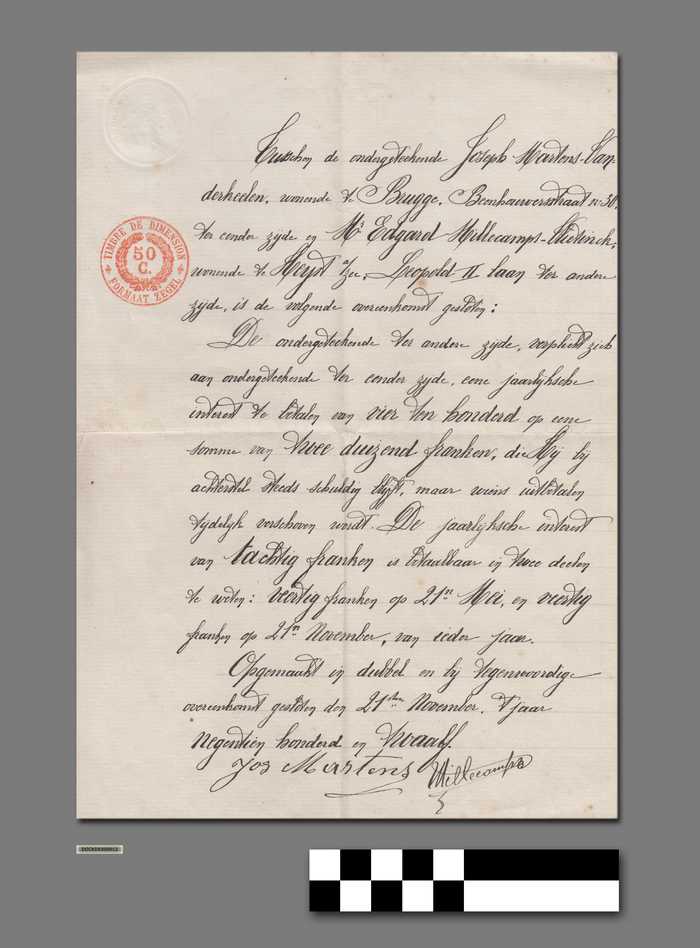 TIMBRE DE DIMENSION
50
C.
FORMAAT ZEGEL
Tusschen de ondergeteekende Joseph Martens-Van-
derheelen, wonende te Brugge, Beenhauwersstraat n: 30,
ter eender zyde en Mr Edgard Millecamps-
wonende te Heyst a/zee, Leopold II laan ter andere
zyde, is de volgende overeenkomst gesloten:
De ondergeteekende ter andere zyde, verplicht zich
aan ondergeteekende ter eender zyde, eene jaarlijksche
interest te betalen van vier ten honderd op eene
somme van twee duizend franken, die Hij bij
achterstel steeds schuldig blijft, maar wiens uitbetalen
tijdelijk verschoven wordt. De jaarlijksche interest
van tachtig franken is betaalbaar in twee deelen
te weten: veertig franken op 21n Mei, en veertig
franken op 21n November, van ieder jaar.
Opgemaakt in dubbel en bij tegenwoordige
overeenkomst gesloten den 21sten November, 't jaar
negentien honderd en twaalf.
Jos Martens Millecamps